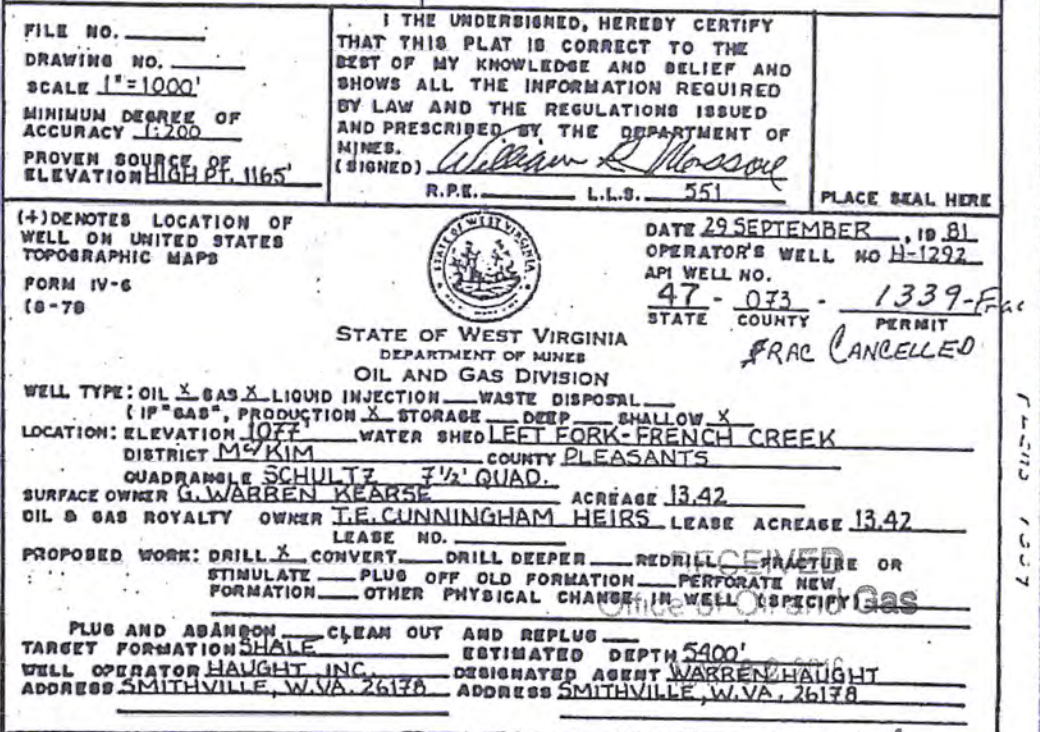 FILE NO.
DRAWING NO.
SCALE 1"=1000'
MINIMUM DEGREE OF
ACCURACY 1:200
PROVEN SOURCE OF
ELEVATION HIGH PT. 1165'
I THE UNDERSIGNED, HEREBY CERTIFY
THAT THIS PLAT IS CORRECT TO THE
BEST OF MY KNOWLEDGE AND BELIEF AND
SHOWS ALL THE INFORMATION REQUIRED
BY LAW AND THE REGULATIONS ISSUED
AND PRESCRIBED BY THE DEPARTMENT OF
MINES.
(SIGNED) William R
R.P.E. L.L.S. 551
PLACE SEAL HERE
(+) DENOTES LOCATION OF
WELL ON UNITED STATES
TOPOGRAPHIC MAPS
FORM IV-6
(8-78
STATE OF WEST VIRGINIA
STATE OF WEST VIRGINIA
DEPARTMENT OF MINES
OIL AND GAS DIVISION
DATE 29 SEPTEMBER, 19 81
OPERATOR'S WELL NO H-1292
API WELL NO.
47 - 073 - 1339-Frac
STATE COUNTY PERMIT
FRAC CANCELLED
WELL TYPE: OIL X GAS X LIQUID INJECTION WASTE DISPOSAL
(IF "GAS", PRODUCTION X STORAGE DEEP SHALLOW X
LOCATION: ELEVATION 1077' WATER SHED LEFT FORK-FRENCH CREEK
DISTRICT McKIM COUNTY PLEASANTS
QUADRANGLE SCHULTZ 7 1/2' QUAD.
SURFACE OWNER G. WARREN KEARSE ACREAGE 13.42
OIL & GAS ROYALTY OWNER T.E. CUNNINGHAM HEIRS LEASE ACREAGE 13.42
LEASE NO.
PROPOSED WORK: DRILL X CONVERT DRILL DEEPER REDRILL FRACTURE OR
STIMULATE PLUG OFF OLD FORMATION PERFORATE NEW
FORMATION OTHER PHYSICAL CHANGE IN WELL (SPECIFY)
RECEIVED
Office of Oil and Gas
PLUG AND ABANDON CLEAN OUT AND REPLUG
TARGET FORMATION SHALE ESTIMATED DEPTH 5400'
WELL OPERATOR HAUGHT INC. DESIGNATED AGENT WARREN HAUGHT
ADDRESS SMITHVILLE, W.VA. 26178 ADDRESS SMITHVILLE, W.VA. 26178